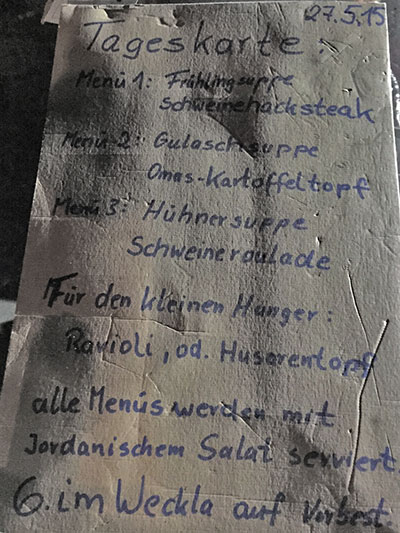 27.5.15
Tageskarte:
Menü 1: Frühlingsuppe
Schweinehacksteak
Menü 2: Gulaschsuppe
Omas-Kartoffeltopf
Menü 3: Hühnersuppe
Schweineroulade
Für den kleinen Hunger:
Ravioli, od. Husarentopf
alle Menüs werden mit
Jordanischem Salat serviert.
6. im Weckla auf Vorbest.